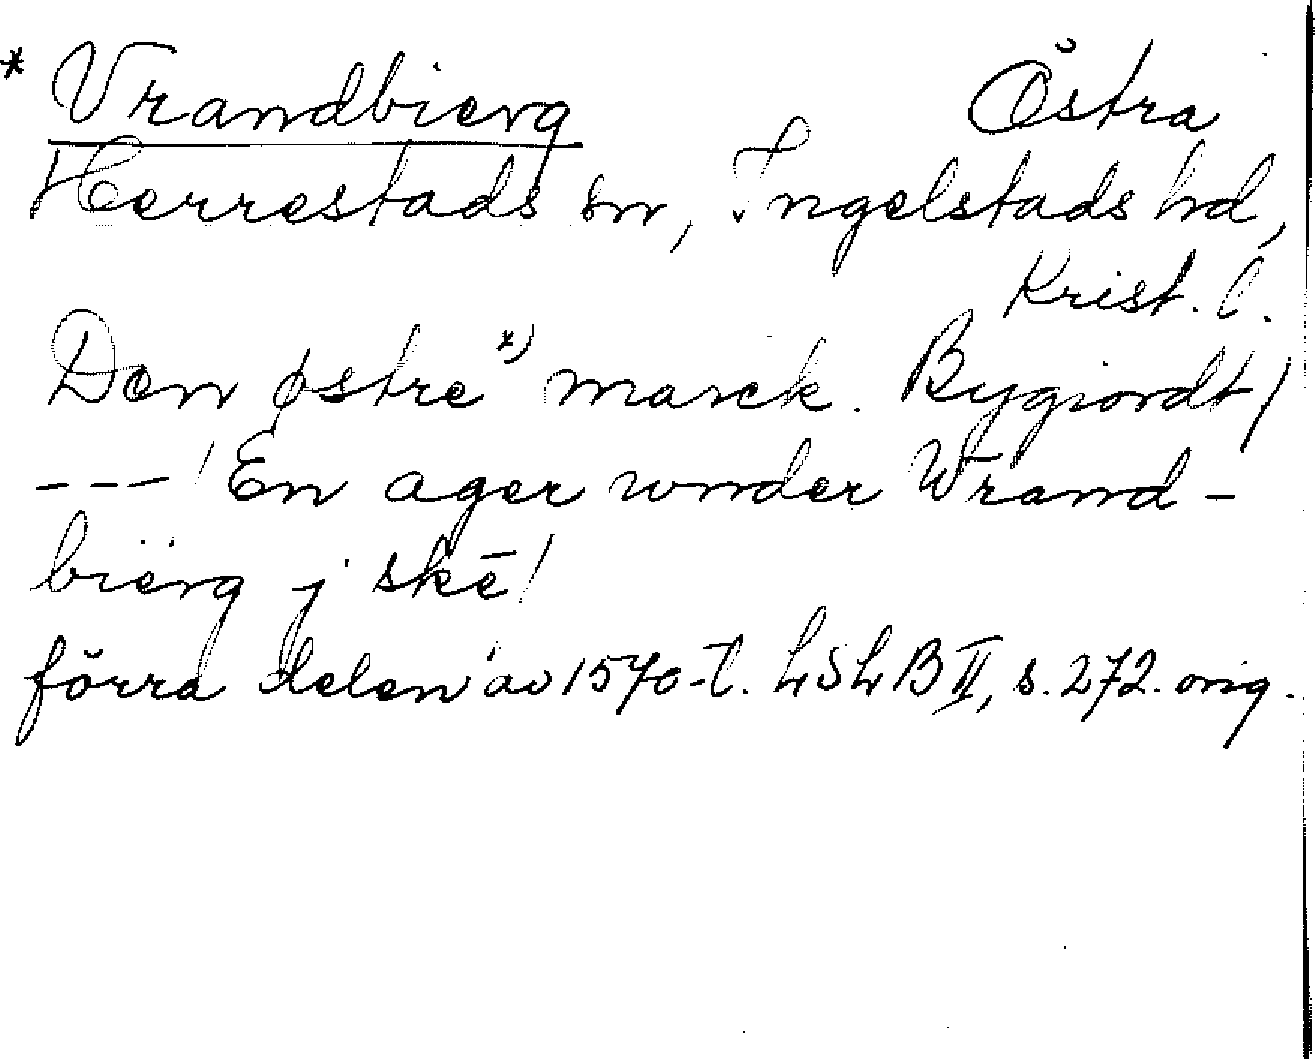 * Vrandbierg Östra
Herrestads sn, Ingelstads hd,
Krist. l.
Den østre *) marck. Bygiordt/
--- / En ager wnder Wrand-
biërg j skē/
förra delen av 1570-t. LSLB II, s. 272. orig.